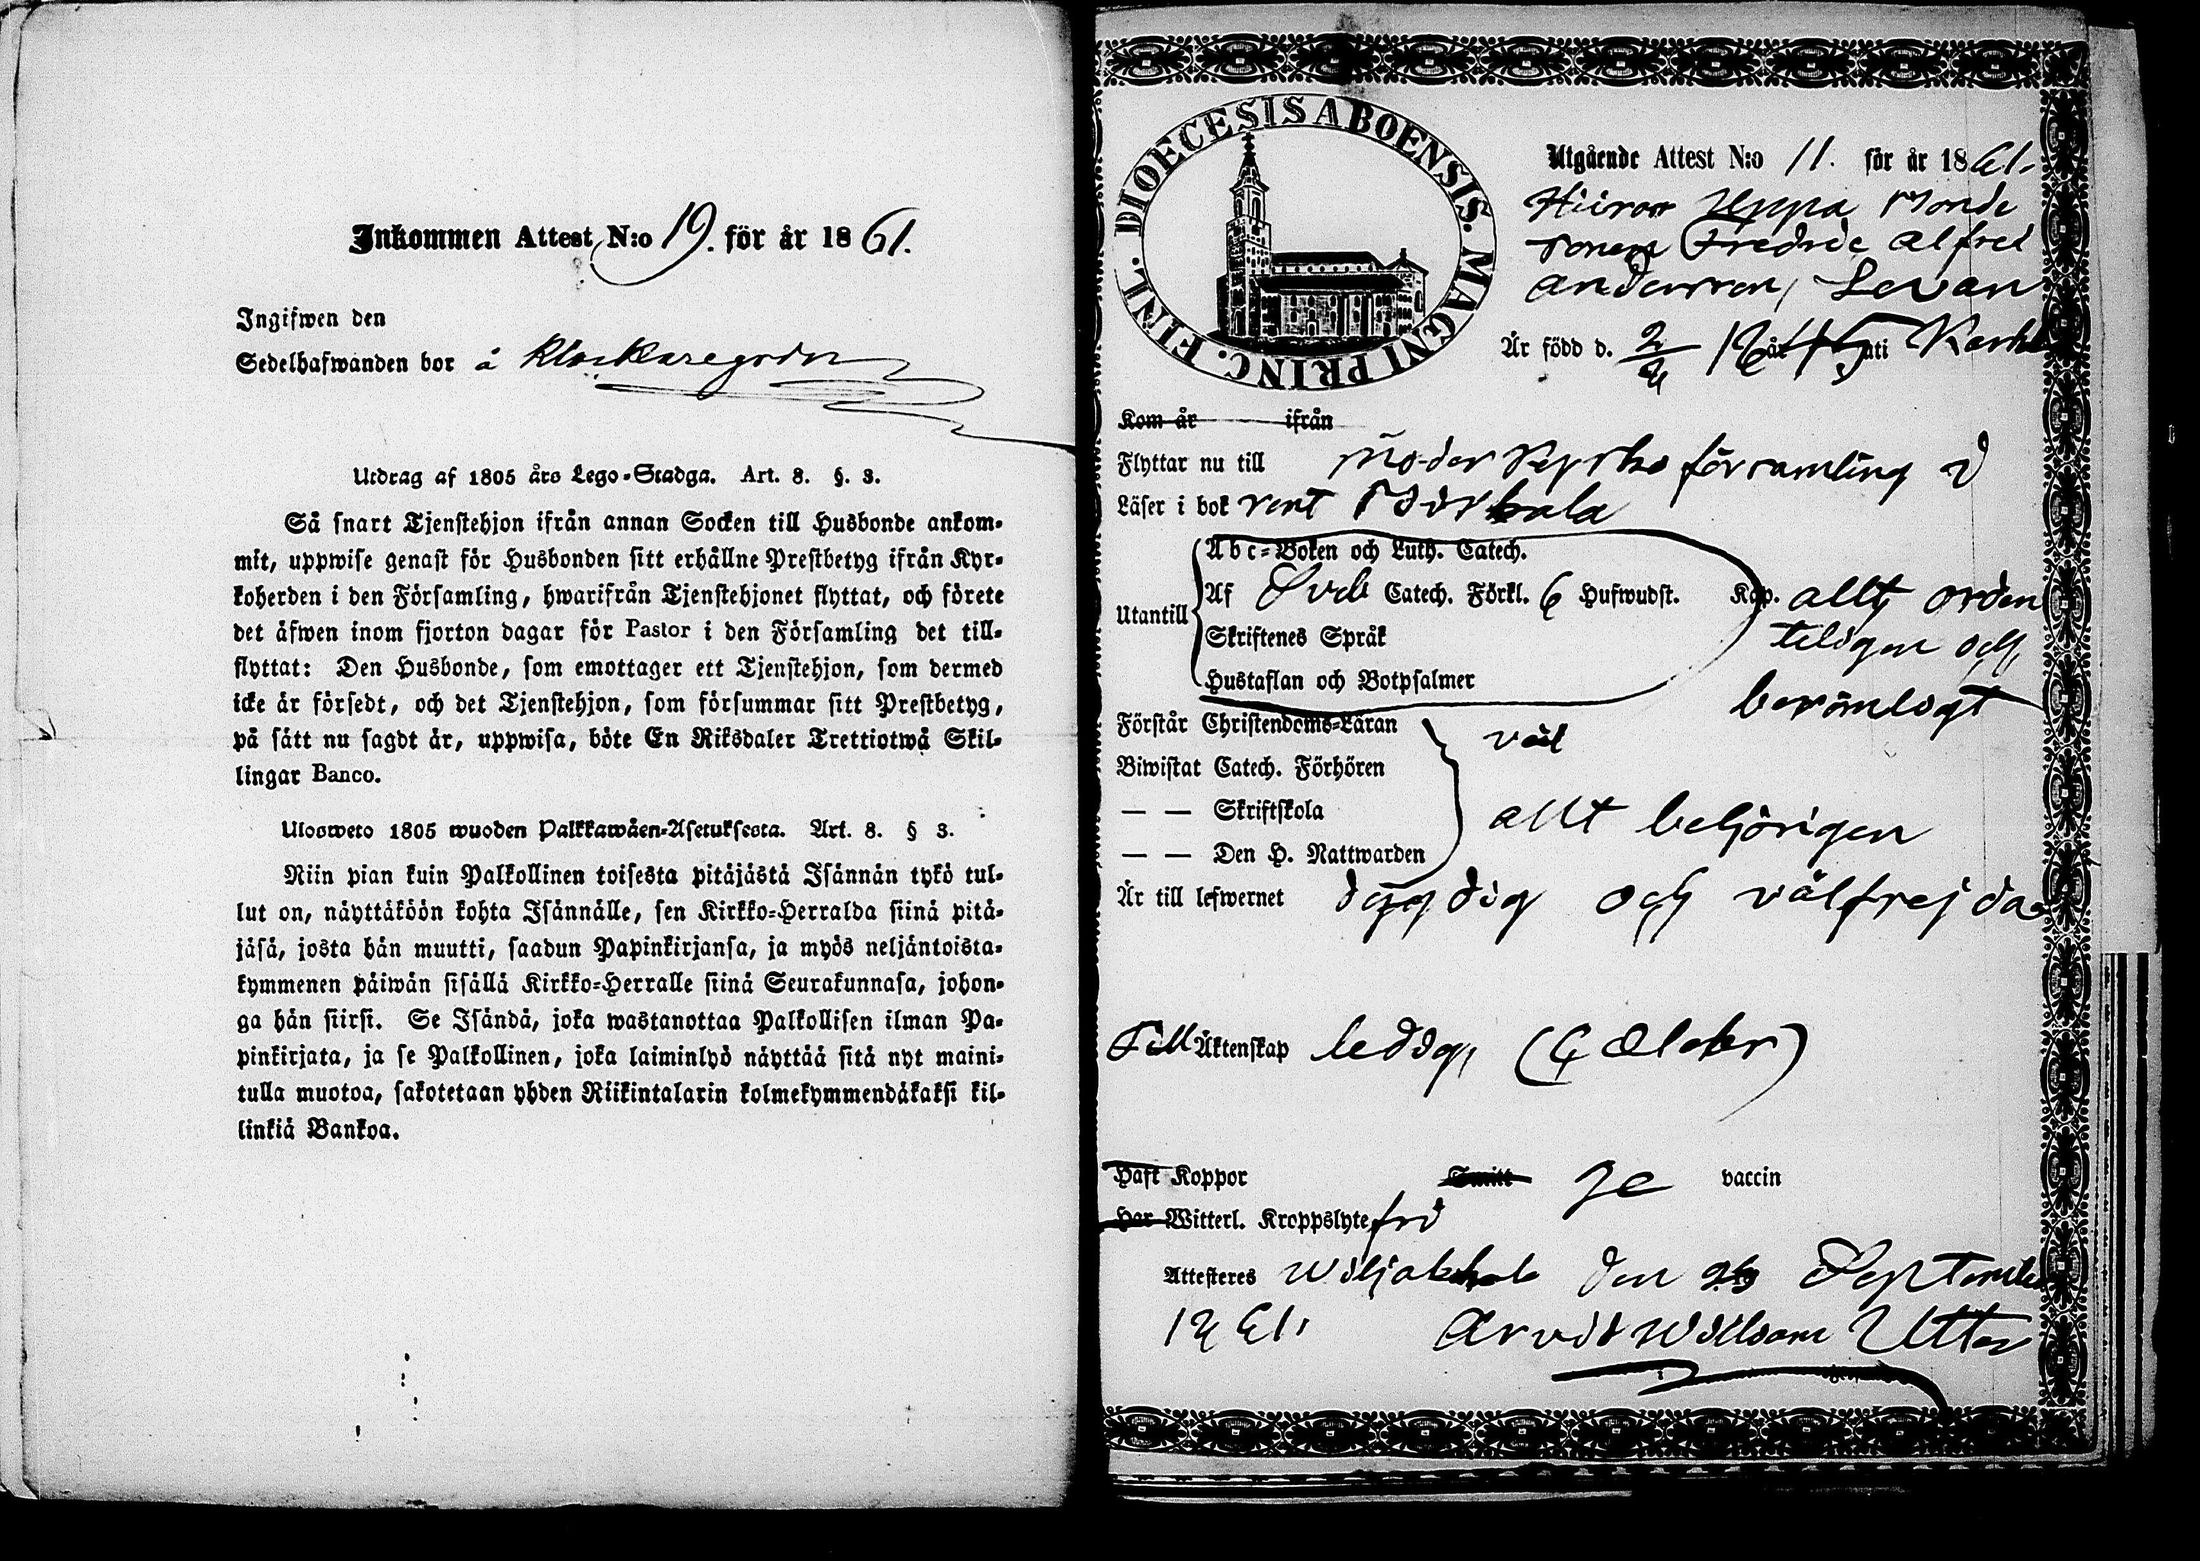 Inkommen Attest N:o 19. för år 1861.
Ingifwen den
Sedelhafwanden bor å Klockaregården
Utdrag af 1805 års Lego-Stadga. Art. 8. §. 3.
Så snart Tjenstehjon ifrån annan Socken till Husbonde ankom-
mit, uppwise genast för Husbonden sitt erhållne Prestbetyg ifrån Kyr-
koherden i den Församling, hwarifrån Tjenstehjonet flyttat, och förete
det äfwen inom fjorton dagar för Pastor i den Församling det till-
flyttat: Den Husbonde, som emottager ett Tjenstehjon, som dermed
icke är försedt, och det Tjenstehjon, som försummar sitt Prestbetyg,
på sätt nu sagdt är, uppwisa, böte En Riksdaler Trettiotwå Skil-
lingar Banco.
Ulosweto 1805 wuoden Palkkawäen-Asetuksesta. Art. 8. § 3.
Niin pian kuin Palkollinen toisesta pitäjästä Isännän tykö tul-
lut on, näyttäköön kohta Isännälle, sen Kirkko-Herralda siinä pitä-
jäsä, josta hän muutti, saadun Papinkirjansa, ja myös neljäntoista-
kymmenen päiwän sisällä Kirkko-Herralle siinä Seurakunnasa, johon-
ga hän siirsi. Se Isändä, joka wastanottaa Palkollisen ilman Pa-
pinkirjata, ja se Palkollinen, joka laiminlyö näyttää sitä nyt maini-
tulla muotoa, sakotetaan yhden Riikintalarin kolmekymmendäkaksi kil-
linkiä Bankoa.
DIOECESIS ABOENSIS. MAGNI PRINC. FINL.
Utgående Attest N:o 11. för år 1861.
Uppa Bonde
sonen Fredric Alfred
Andersson, Levan
Är född d. 2/8 1845 uti Karku
Kom år ifrån
Flyttar nu till Moder Kyrko församling i
Läser i bok rent Birkala
Abc-Boken och Luth. Catech.
Utantill Af Sveb Catech. Förkl. 6 Hufwudst. Kap. allt, orden
Skriftenes Språk teligen och
Hustaflan och Botpsalmer berömligt
Förstår Christendoms-Läran väl
Biwistat Catech. Förhören
— — Skriftskola allt behörigen
— — Den H. Nattwarden
Är till lefwernet dygdig och välfrejda
Till Äktenskap ledig,
Haft Koppor Smitt ge vaccin
Har Witterl. Kroppslyte fri
Attesteres Wiljakkala den September
1861. Arvid William Utter